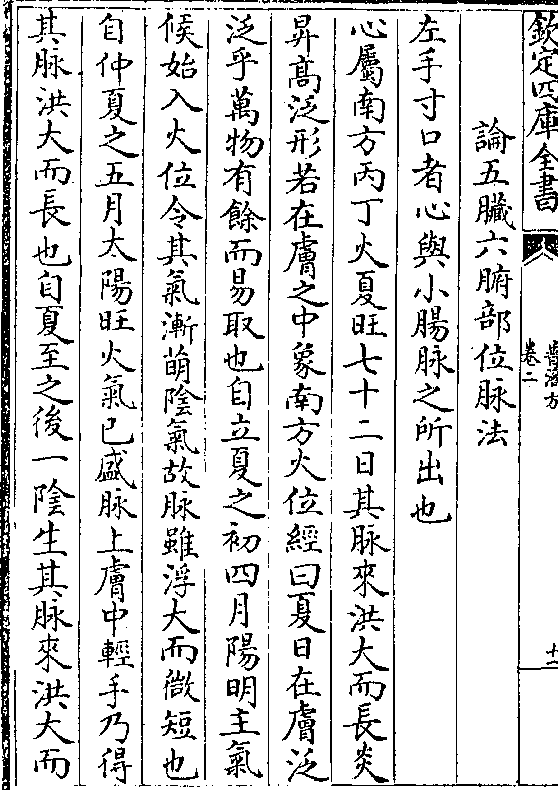 欽定四庫全書
普濟方
卷二
十二
論五臟六腑部位脉法
左手寸口者心與小腸脉之所出也
心屬南方丙丁火夏旺七十二日其脉來洪大而長炎
昇髙泛形若在膚之中象南方火位經曰夏日在膚泛
泛乎萬物有餘而易取也自立夏之初四月陽明主氣
候始入火位令其氣漸萌陰氣故脉雖浮大而微短也
自仲夏之五月太陽旺火氣已盛脉上膚中輕手乃得
其脉洪大而長也自夏至之後一陰生其脉來洪大而